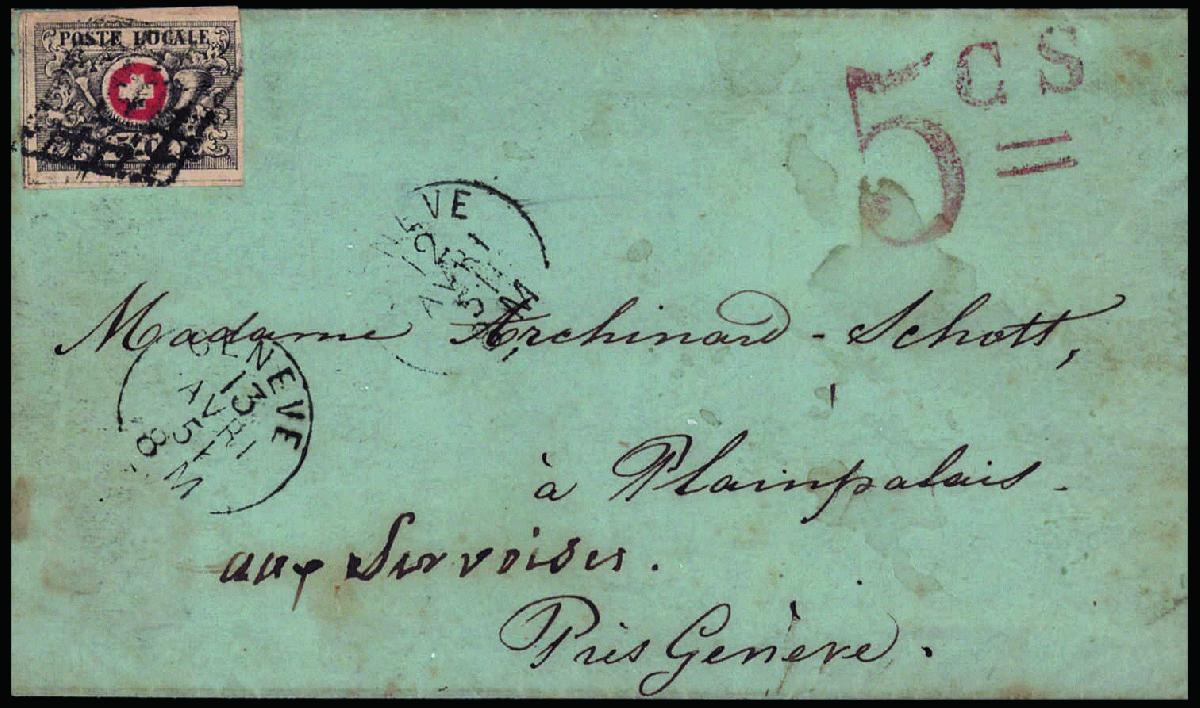 POSTE LOCALE
5 CS
NEVE
12
AVRI
51
M
Madame Archinard-Schott,
GENEVE
13
AVRI
51
8 M
à Plainpalais.
aux Servoises.
Près Genève.